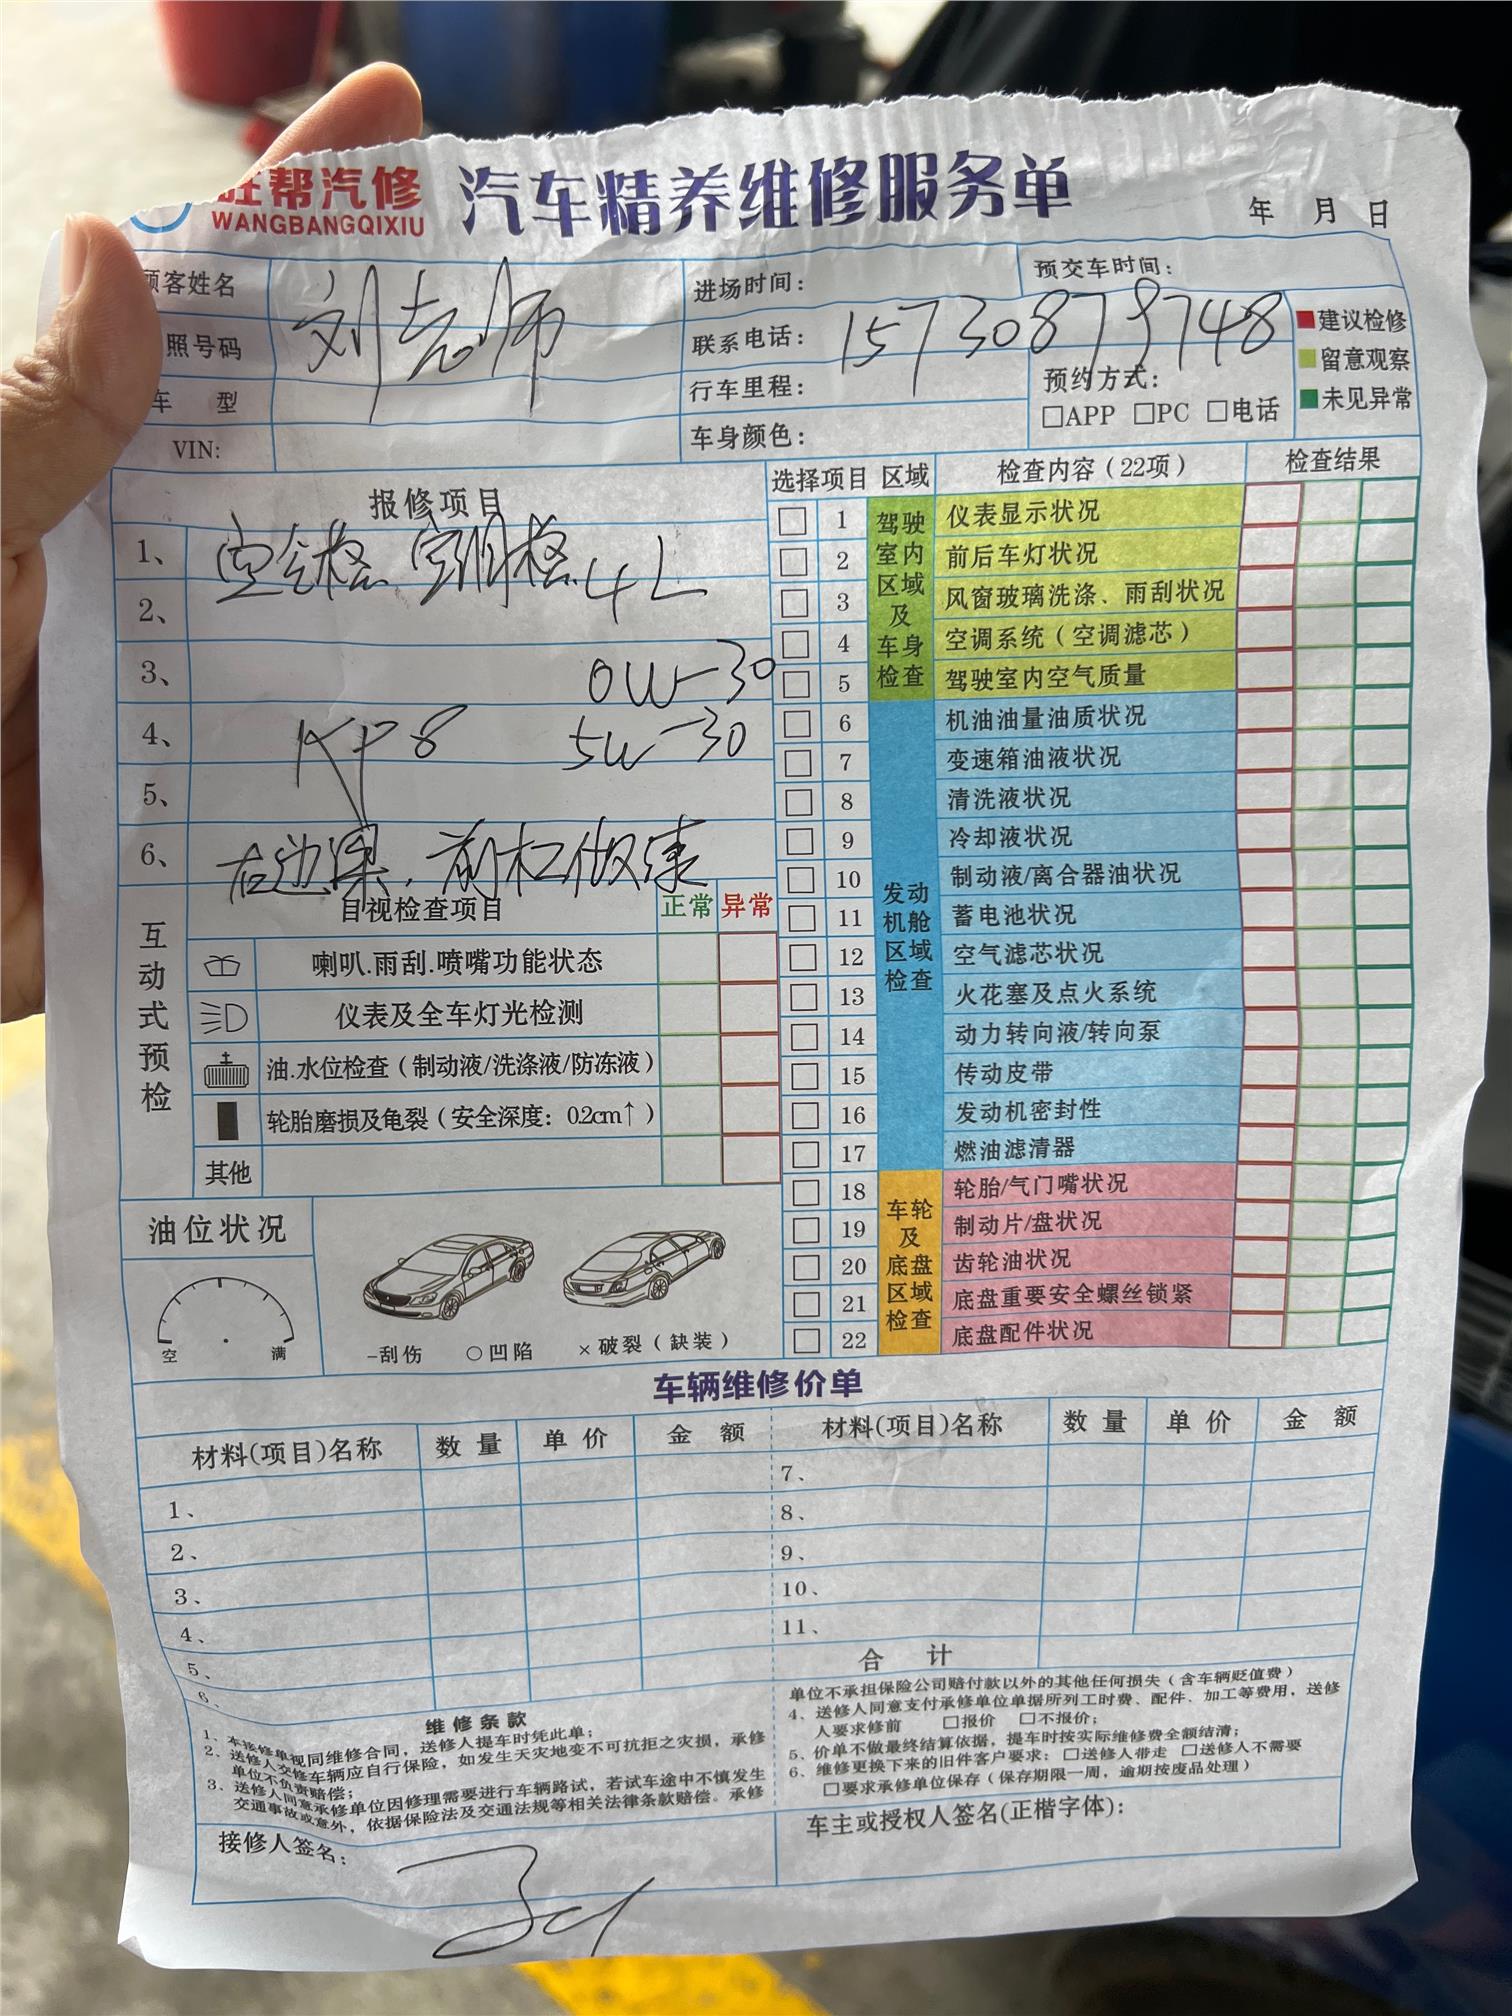 旺帮汽修 汽车精养维修服务单
WANGBANGQIXIU
年 月 日
顾客姓名 刘老师 进场时间： 预交车时间：
照号码 联系电话：15730879748
车 型 行车里程： 预约方式：
□APP □PC □电话
VIN: 车身颜色：
建议检修
留意观察
未见异常
报修项目
1、空气格、空调格
2、4L
3、0W-30
4、KP8 5W-30
5、
6、右边梁，前杠做漆
互动式预检
目视检查项目 正常 异常
喇叭.雨刮.喷嘴功能状态
仪表及全车灯光检测
油.水位检查（制动液/洗涤液/防冻液）
轮胎磨损及龟裂（安全深度：0.2cm↑）
其他
油位状况
空 满
-刮伤 ○凹陷 ×破裂（缺装）
选择项目 区域 检查内容（22项） 检查结果
驾驶室内区域及车身检查
1 仪表显示状况
2 前后车灯状况
3 风窗玻璃洗涤、雨刮状况
4 空调系统（空调滤芯）
5 驾驶室内空气质量
发动机舱区域检查
6 机油油量油质状况
7 变速箱油液状况
8 清洗液状况
9 冷却液状况
10 制动液/离合器油状况
11 蓄电池状况
12 空气滤芯状况
13 火花塞及点火系统
14 动力转向液/转向泵
15 传动皮带
16 发动机密封性
17 燃油滤清器
车轮及底盘区域检查
18 轮胎/气门嘴状况
19 制动片/盘状况
20 齿轮油状况
21 底盘重要安全螺丝锁紧
22 底盘配件状况
车辆维修价单
材料(项目)名称 数量 单价 金额 材料(项目)名称 数量 单价 金额
1、
2、
3、
4、
5、
6、
7、
8、
9、
10、
11、
合 计
维修条款
1、本接修单视同维修合同，送修人提车时凭此单；
2、送修人交修车辆应自行保险，如发生天灾地变不可抗拒之灾损，承修
单位不负责赔偿；
3、送修人同意承修单位因修理需要进行车辆路试，若试车途中不慎发生
交通事故或意外，依据保险法及交通法规等相关法律条款赔偿。承修
单位不承担保险公司赔付款以外的其他任何损失（含车辆贬值费）
4、送修人同意支付承修单位单据所列工时费、配件、加工等费用，送修
人要求修前 □报价 □不报价；
5、价单不做最终结算依据，提车时按实际维修费全额结清；
6、维修更换下来的旧件客户要求：□送修人带走 □送修人不需要
□要求承修单位保存（保存期限一周，逾期按废品处理）
接修人签名：
车主或授权人签名(正楷字体)：